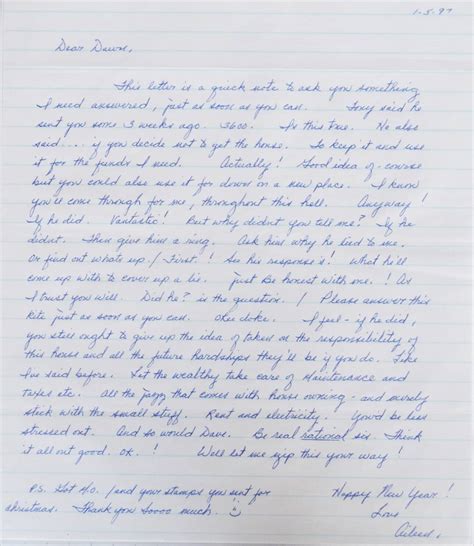 1-5-97
Dear Dawn,
This letter is a quick note to ask you something
I need answered, just as soon as you can. Tony said he
sent you some 3 weeks ago. 3600. Is this true. He also
said.... if you decide not to get the house. To keep it and use
it for the funds I need. Actually! Good idea of-course
but you could also use it for down on a new place. I know
you'll come through for me, throughout this hell. Anyway!
If he did. Fantastic! But why didn't you tell me? If he
didn't. Then give him a ring. Ask him why he lied to me.
Or find out whats up! First! See his response's! What he'll
come up with to cover up a lie. Just Be honest with me.! As
I trust you will. Did he? is the question. / Please answer this
kite just as soon as you can. Okie doke. I feel - if he did,
you still ought to give up the idea of taken on the responsibility of
this house and all the future hardships they'll be if you do. Like
I've said before. Let the wealthy take care of Maintenance and
taxes etc. All the jazz that comes with house owning - and merely
stick with the small stuff. Rent and electricity. You'd be less
stressed out. And so would Dave. Be real rational sis. Think
it all out good. OK.! Well let me zip this your way!
P.S. Got M.O. / and your stamps you sent for
Christmas. Thank you Soooo much.
Happy New Year!
Love
Aileen.